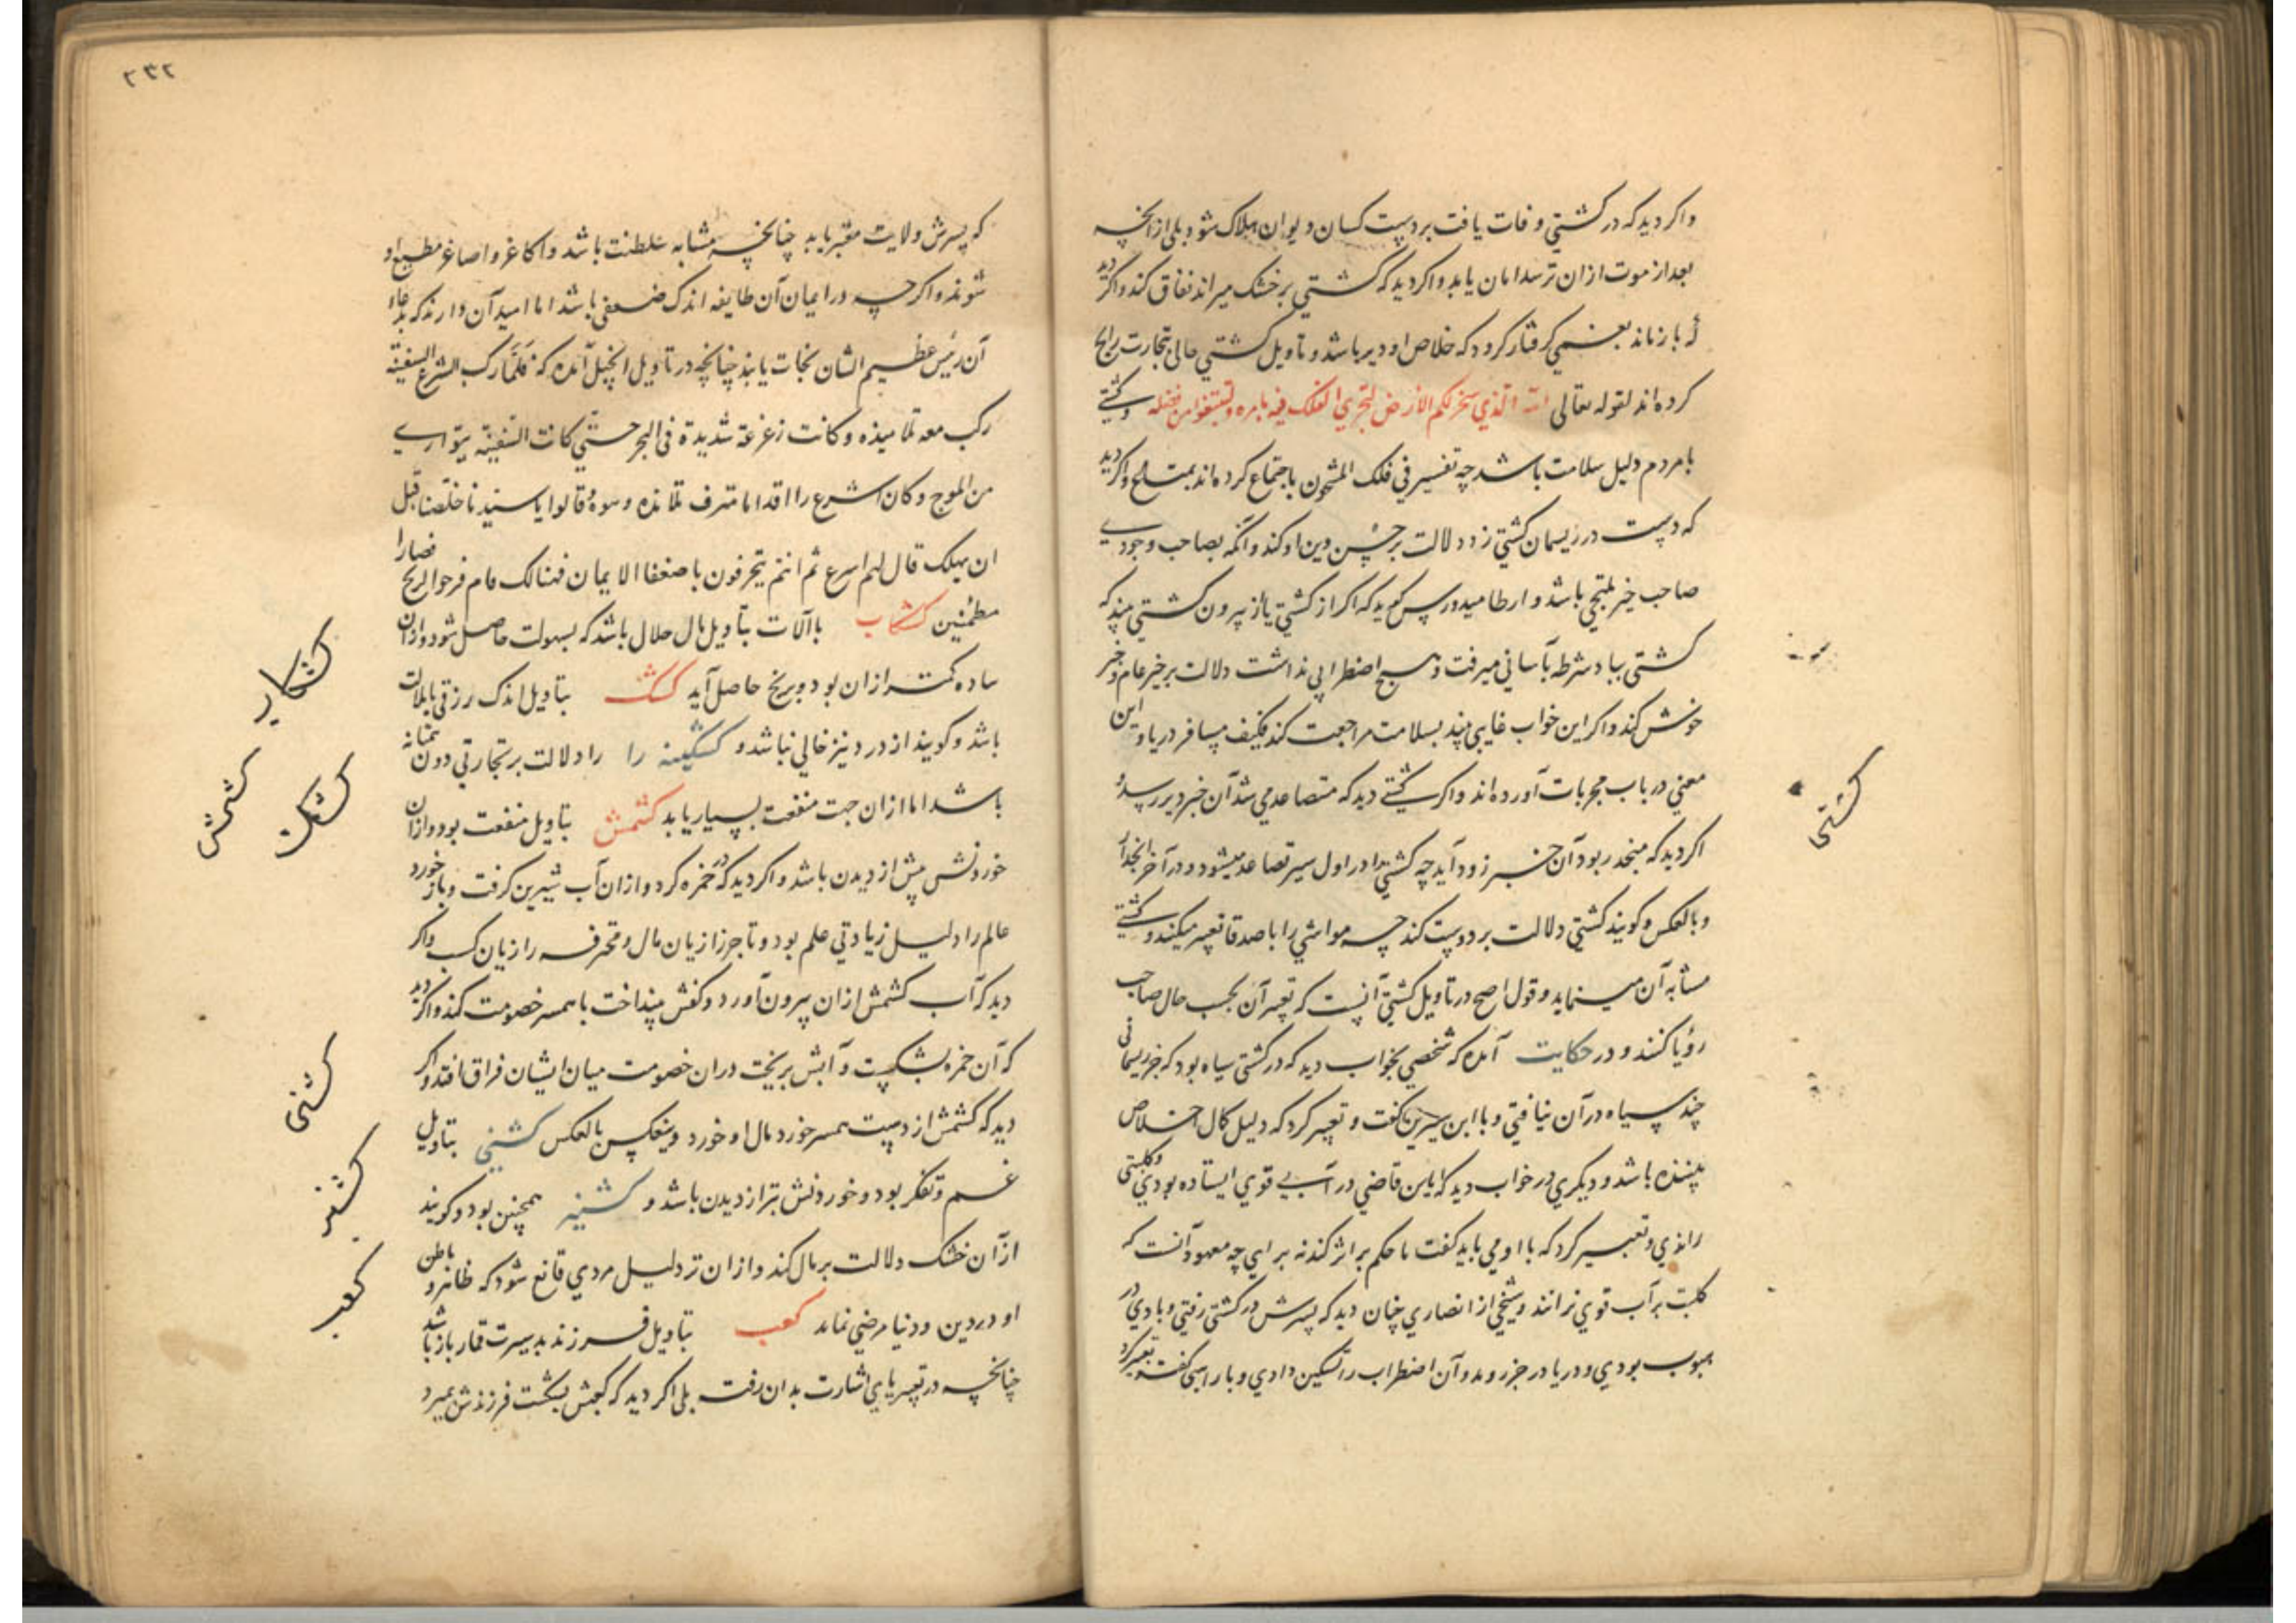 واکر دید که در کشتی وفات یافت بر دست کسان دیوان هلاک شود بلی از آنچه
بعد از موت ازان ترسد امان یابد واکر دید که کشتی بر خشک میراند نفاق کند واکر دید
که باز ماند بغمی کرفتار کردد که خلاص او دیر باشد و تاویل کشتی خالی بتجارت رابح
کرده اند لقوله تعالی الله الذی سخر لکم الارض لتجری الفلک فیه بامره ولتبتغوا من فضله وکشتی
با مردم دلیل سلامت باشد چه تفسیر فی فلک المشحون باجتماع کرده اند بمتاع واکر دید
که دست در ریسمان کشتی زد دلالت بر حسن دین او کند وآنکه بصاحب وجودی
صاحب خیر ملتجی باشد و ارطامیدورس کوید که اکر از کشتی یا از بیرون کشتی بیند که
کشتی بباد شرطه بآسانی میرفت و هیچ اضطرابی نداشت دلالت بر خیر عام و خبر
خوش کند واکر این خواب غایبی بیند بسلامت مراجعت کند فکیف مسافر دریا و این
معنی در باب مجربات آورده اند واکر کشتی دید که متصاعد می شد آن خبر دیر رسد و
اکر دید که منحدر بود آن خبر زود آید چه کشتی را در اول سیر تصاعد میشود و در آخر انحدار
وبالعکس وکویند کشتی دلالت بر دوست کند چه مواشی را با صدقا تعبیر میکنند وکشتی
مشابه آن مینماید وقول اصح در تاویل کشتی آنست که تعبیر آن بحسب حال صاحب
رؤیا کنند و در حکایت آمده که شخصی بخواب دید که در کشتی سیاه بود که جز ریسمانی
چند سیاه در آن نیافتی و با ابن سیرین کفت و تعبیر کرد که دلیل کمال اخلاص
بیننده باشد و دیگری در خواب دید که باین قاضی در آب قوی ایستاده بودی و کلبتی
راندی و تعبیر کرد که با او می باید کفت تا حکم بر اثر کند نه برای چه معهود آنست که
کلبت بر آب قوی نرانند و شیخی از انصاری چنان دید که پسرش در کشتی رفتی و بادی در
هبوب بودی و دریا در جزر و مد و آن اضطراب را تسکین دادی و با راهبی کفت تعبیر کرد
کشتی
۲۳۲
که پسرش ولایت معتبر یابد چنانچه مشابه سلطنت باشد واکابر واصاغر مطیع او
شوند واکر چه در ایمان آن طایفه اندک ضعفی باشد اما امید آن دارند که بدعاء
آن رئیس عظیم الشان نجات یابند چنانچه در تاویل انجیل آمده که فلما رکب الشرع السفینة
رکب معه تلامیذه وکانت زعزعة شدیدة فی البحر حتی کانت السفینة یتواری
من الموج وکان اشرع راقدا تلامذه وقالوا یا سیدنا خلصنا قبل
ان یهلک قال لهم اسرع ثم انتم تحرفون یا ضعفا الایمان فهنالک قام فزجر الریح فصارا
مطمئنین کشکاب با آلات بتاویل مال حلال باشد که بسهولت حاصل شود وازان
ساده کمتر ازان بود و برنج حاصل آید کشک بتاویل اندک رزقی با ملالت
باشد وکویند از درد نیز خالی نباشد و کشکینه را را دلالت بر تجارتی دون
باشد اما ازان جهت منفعت بسیار یابد کشمش بتاویل منفعت بود وازان
خوردنش بیش از دیدن باشد واکر دید که در خمره کرد وازان آب شیرین کرفت و باز خورد
عالم را دلیل زیادتی علم بود و تاجر را زیان مال و محترفه را زیان کسب واکر
دید که آب کشمش ازان بیرون آورد وکفش بینداخت با همسر خصومت کند واکر دید
که آن خمره بشکست و آبش بریخت دران خصومت میان ایشان فراق افتد واکر
دید که کشمش از دست همسر خورد مال او خورد وینعکس بالعکس کشنی بتاویل
غم و تفکر بود و خوردنش بتر از دیدن باشد و کشنیز همچنین بود وکویند
از آن خشک دلالت بر مال کند وازان تر دلیل مردی قانع شود که ظاهر و باطن
او در دین و دنیا مرضی نماید کعب بتاویل فرزند بدسیرت قمارباز باشد
چنانچه در تعبیر پای اشارت بدان رفت بلی اکر دید که کعبش بشکست فرزندش بمیرد
کشکاب
کشک
کشمش
کشنی
کشنیز
کعب